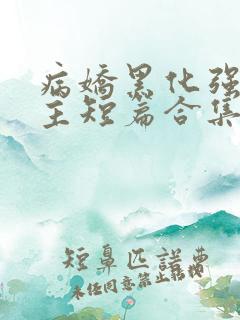 病娇黑化强
主短篇合集
短鼻匹諾曹
未经同意禁止转载